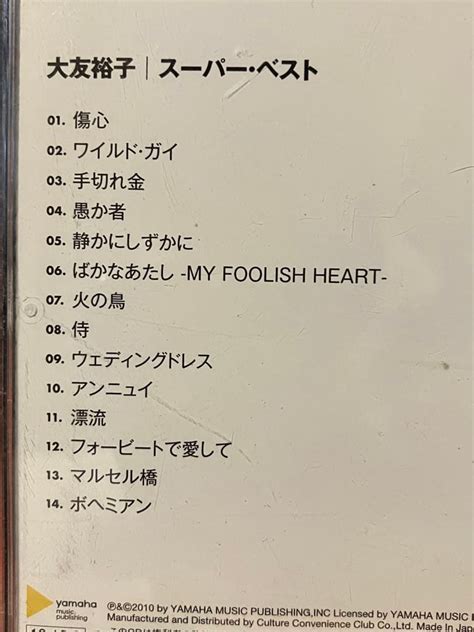 大友裕子｜スーパー・ベスト
01. 傷心
02. ワイルド・ガイ
03. 手切れ金
04. 愚か者
05. 静かにしずかに
06. ばかなあたし -MY FOOLISH HEART-
07. 火の鳥
08. 侍
09. ウェディングドレス
10. アンニュイ
11. 漂流
12. フォービートで愛して
13. マルセル橋
14. ボヘミアン
yamaha
music
publishing
℗&©2010 by YAMAHA MUSIC PUBLISHING,INC Licensed by YAMAHA MUSI
Manufactured and Distributed by Culture Convenience Club Co.,Ltd. Made In Japa